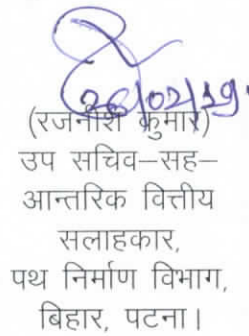 26/02/19
(रजनीश कुमार)
उप सचिव–सह–
आन्तरिक वित्तीय
सलाहकार,
पथ निर्माण विभाग,
बिहार, पटना।